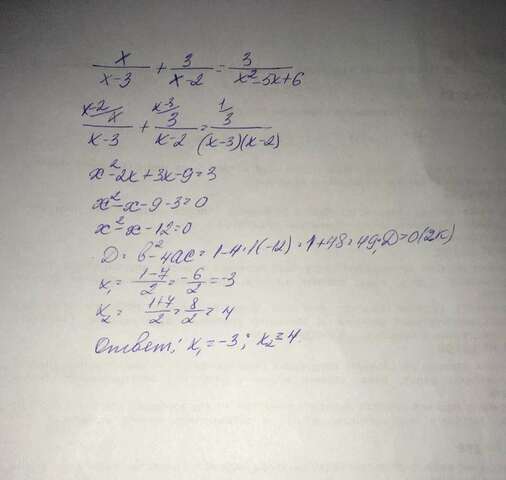 x/(x-3) + 3/(x-2) = 3/(x²-5x+6)
x-2/ x/(x-3) + x-3/ 3/(x-2) = 1/ 3/((x-3)(x-2))
x²-2x+3x-9=3
x²-x-9-3=0
x²-x-12=0
D= b²-4ac= 1-4·1(-12)=1+48=49; D=0(2к)
x₁= (1-7)/2 = -6/2 = -3
x₂= (1+7)/2 = 8/2 = 4
Ответ: x₁=-3; x₂=4